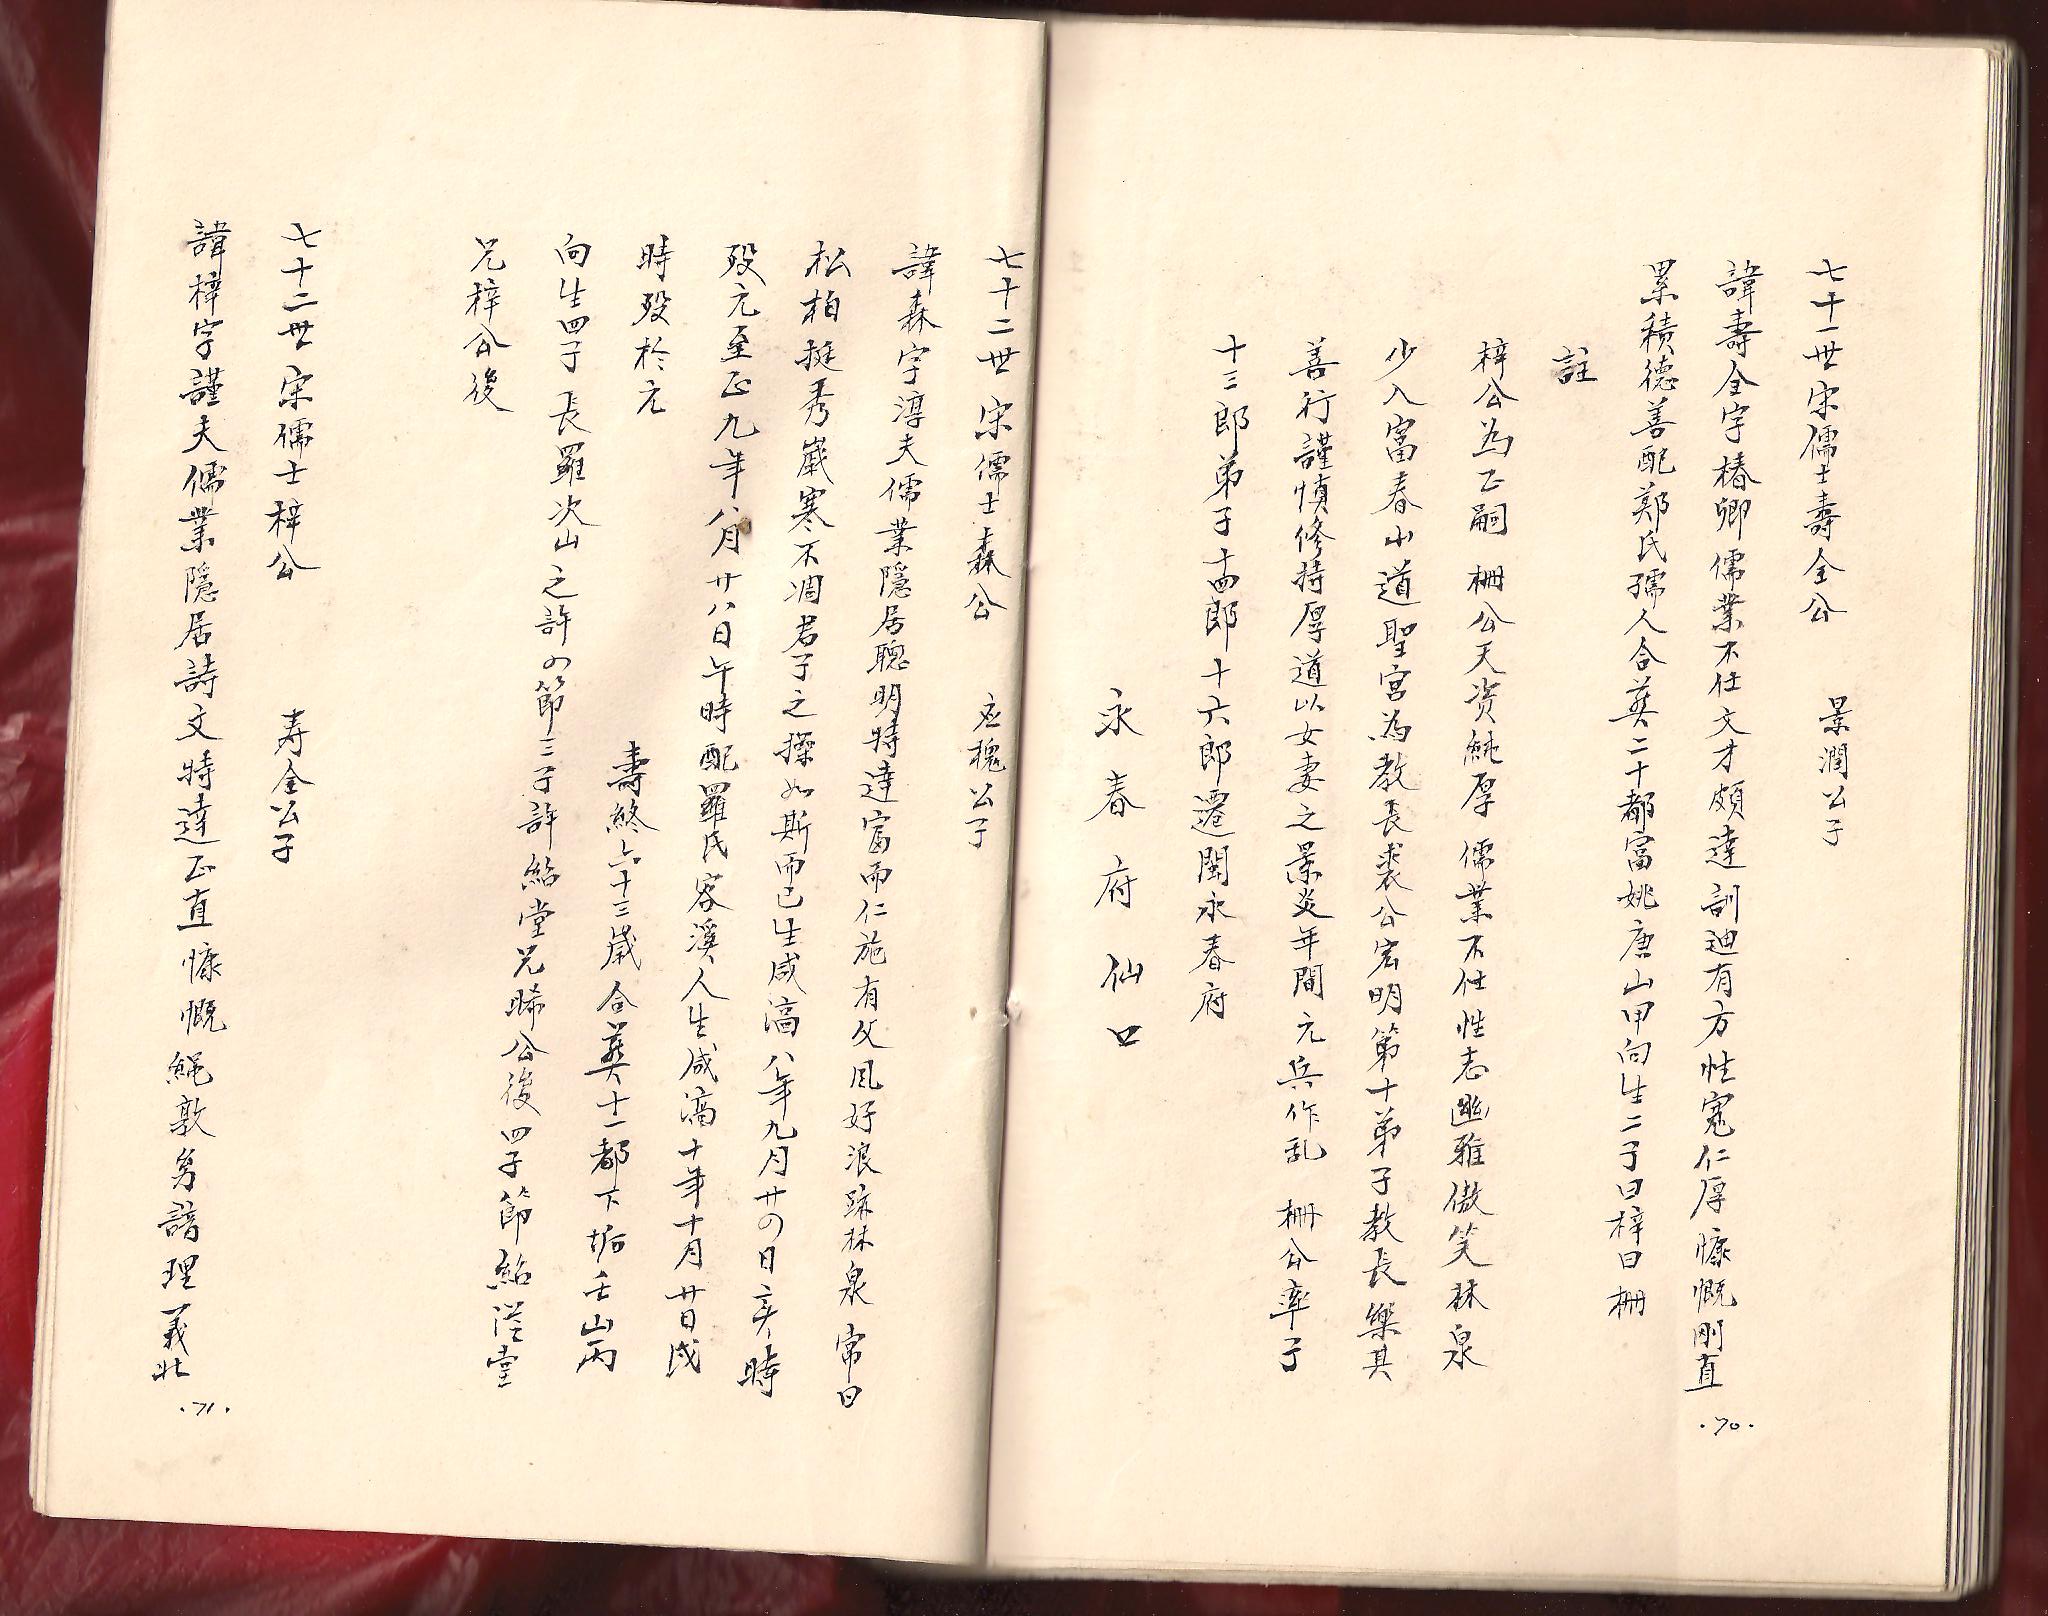 七十一世宋儒士壽全公 景潤公子
諱壽全字椿卿儒業不仕文才頗達訓迪有方性寬仁厚慷慨剛直
累積德善配鄭氏孺人合葬二十都富姚唐山甲向生二子曰梓曰柵
註
梓公為正嗣 柵公天资純厚儒業不仕性志幽雅傲笑林泉
少入富春山道聖宮為教長裘公宏明第十弟子教長樂其
善行謹慎修持厚道以女妻之景炎年間元兵作乱 柵公率子
十三郎弟子十四郎十六郎遷閩永春府
永春府仙口
·70·
七十二世宋儒士森公 应槐公子
諱森字淳夫儒業隱居聰明特達富而仁施有父風好浪跡林泉常曰
松柏挺秀嵗寒不凋君子之操如斯而已生咸淳八年九月廿〤日亥時
殁元至正九年八月廿八日午時配羅氏容溪人生咸淳十年十月廿日戌
時殁於元 壽終六十三嵗合葬十一都下坵壬山丙
向生四子長羅次山之許〤節三子許紿堂兄晞公後四子節紿從堂
兄梓公後
七十二世宋儒士梓公 寿全公子
諱梓字謹夫儒業隱居詩文特達正直慷慨繩敦勇諳理義北
·71·